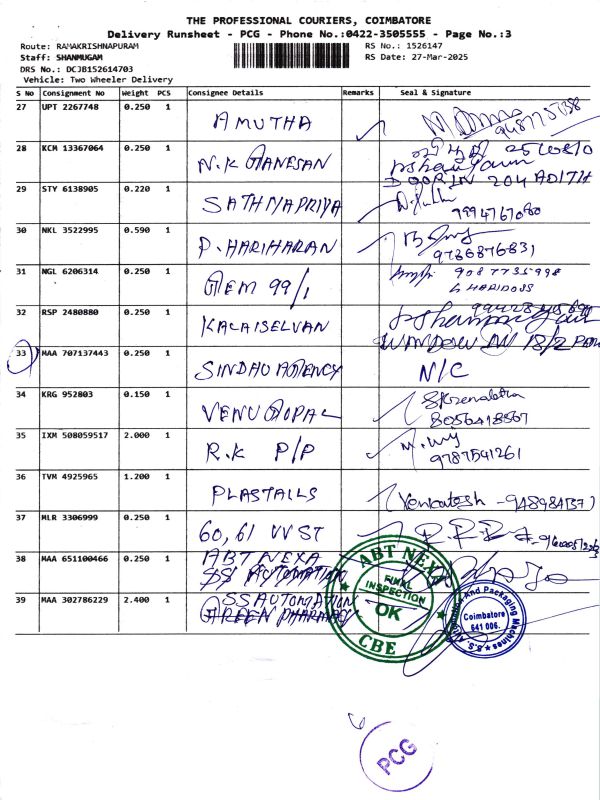 THE PROFESSIONAL COURIERS, COIMBATORE
Delivery Runsheet - PCG - Phone No.:0422-3505555 - Page No.:3
Route: RAMAKRISHNAPURAM RS No.: 1526147
Staff: SHANMUGAM RS Date: 27-Mar-2025
DRS No.: DCJB152614703
Vehicle: Two Wheeler Delivery
S No Consignment No Weight PCS Consignee Details Remarks Seal & Signature
27 UPT 2267748 0.250 1 AMUTHA
28 KCM 13367064 0.250 1 N.K GANESAN
DOOR IN 204 ADITH
29 STY 6138905 0.220 1 SATHYAPRIYA
7994767080
30 NKL 3522995 0.590 1 P. HARIHARAN
9786876831
31 NGL 6206314 0.250 1 GEM 99/1 9087735998
G HARIDOSS
32 RSP 2480880 0.250 1 KALAISELVAN
WINDOW IN 18/2
33 MAA 707137443 0.250 1 SINDHU AGENCY N/C
34 KRG 952803 0.150 1 VENU GOPAL
8056418867
35 IXM 508059517 2.000 1 R.K P/P
9787541261
36 TVM 4925965 1.200 1 PLASTAILS Venkatesh
37 MLR 3306999 0.250 1 60, 61 VV ST
38 MAA 651100466 0.250 1 ABT NEXA
SS AUTOMATION
39 MAA 302786229 2.400 1 SS AUTOMATION
GREEN PHARMACY
ABT NEXA
FINAL
INSPECTION
OK
CBE
And Packaging Machines
Coimbatore
641 006.
PCG